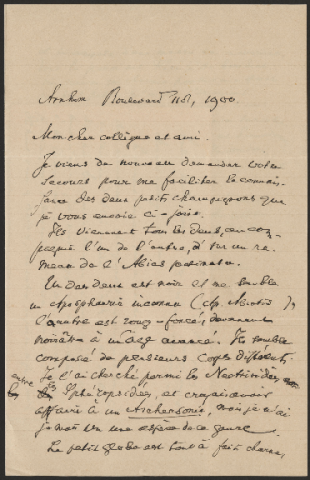 Arnhem Boulevard 1900
Mon cher collègue et ami.
Je viens de nouveau demander votre
secours pour me faciliter la connais-
sance des deux petits champignons que
je vous envoie ci-joints.
Ils viennent tous les deux, en com-
pagnie l'un de l'autre, d'un ra-
meau de l'Abies
L'un des deux est noir et me semble
un inconnu
l'autre est rouge-foncé, devenant
noirâtre à un âge avancé. Ils semble
composé de plusieurs corps différents.
Je l'ai cherché parmi les
entre les Sphéropsidées, et croyais avoir
affaire à un Aschersonia, mais je n'ai
jamais vu une espèce de ce genre.
Le petit globe est tout à fait charnu,